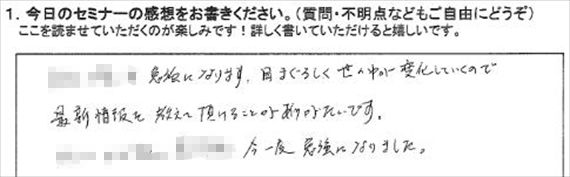 1. 今日のセミナーの感想をお書きください。(質問・不明点などもご自由にどうぞ)
ここを読ませていただくのが楽しみです！詳しく書いていただけると嬉しいです。
勉強になります。目まぐるしく世の中が変化していくので
最新情報を教えて頂けることがありがたいです。
今一度勉強になりました。